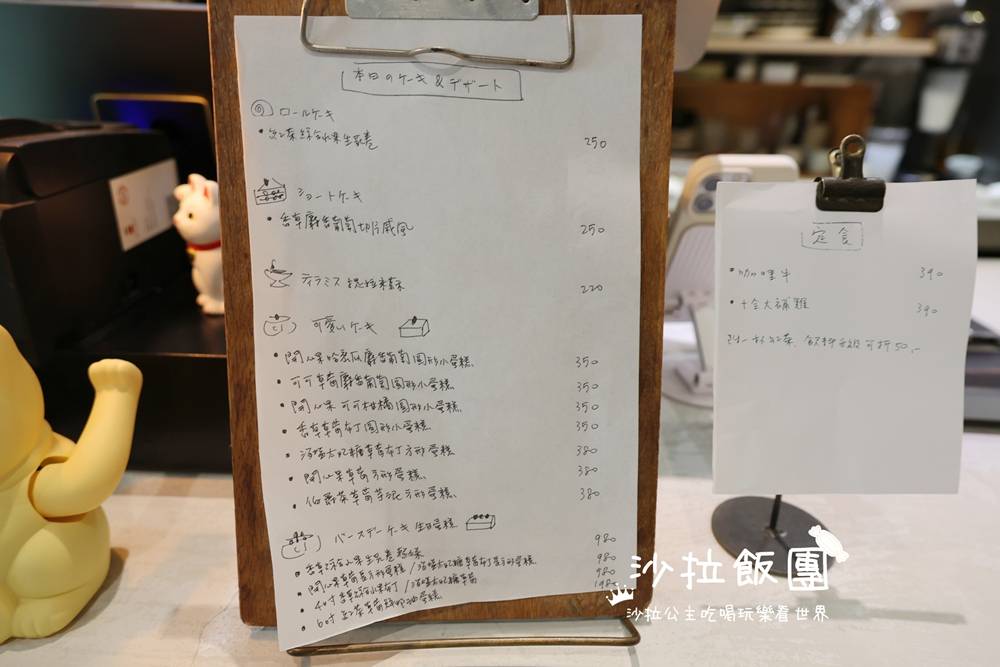 本日のケーキ&デザート
ロールケーキ
• 紅茶綜合水果生乳卷 250
ショートケーキ
• 香草麝香葡萄切片戚風 250
ティラミス 提拉米蘇 220
可愛いケーキ
• 開心果哈密瓜麝香葡萄圓形小蛋糕 350
• 可可草莓麝香葡萄圓形小蛋糕 350
• 開心果可可柑橘圓形小蛋糕 350
• 香草草莓布丁圓形小蛋糕 350
• 瑪斯卡邦草莓布丁方形蛋糕 380
• 開心果草莓方形蛋糕 380
• 伯爵茶草莓芋泥方形蛋糕 380
バースデーケーキ 生日蛋糕
• 香草綜合水果生乳卷 980
• 開心果草莓長方形蛋糕 980
• 4吋香草綜合水果布丁 980
• 6吋
定食
• 咖哩牛 390
• 十全大補雞 390
附一杯紅茶、飲料升級可折50.-
沙拉飯團
沙拉公主吃喝玩樂看世界